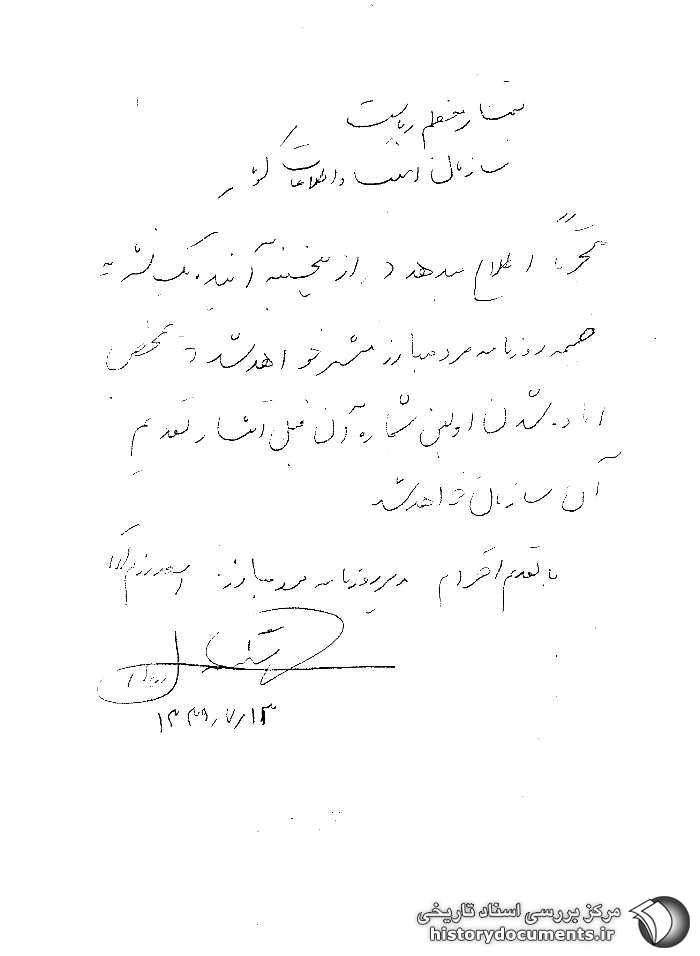 تیمسار معظم ریاست
سازمان امنیت و اطلاعات کشور
محترماً اطلاع میدهد که از پنجشنبه آینده یک نشریه
ضمیمه روزنامه مرد مبارز منتشر خواهد شد که بمحض
آماده شدن اولین شماره آن قبل از انتشار تقدیم
آن سازمان خواهد شد
با تقدیم احترام مدیر روزنامه مرد مبارز: اسد رزم آرا
۱۳۳۹٫۷٫۱۳
مرکز بررسی اسناد تاریخی
historydocuments.ir